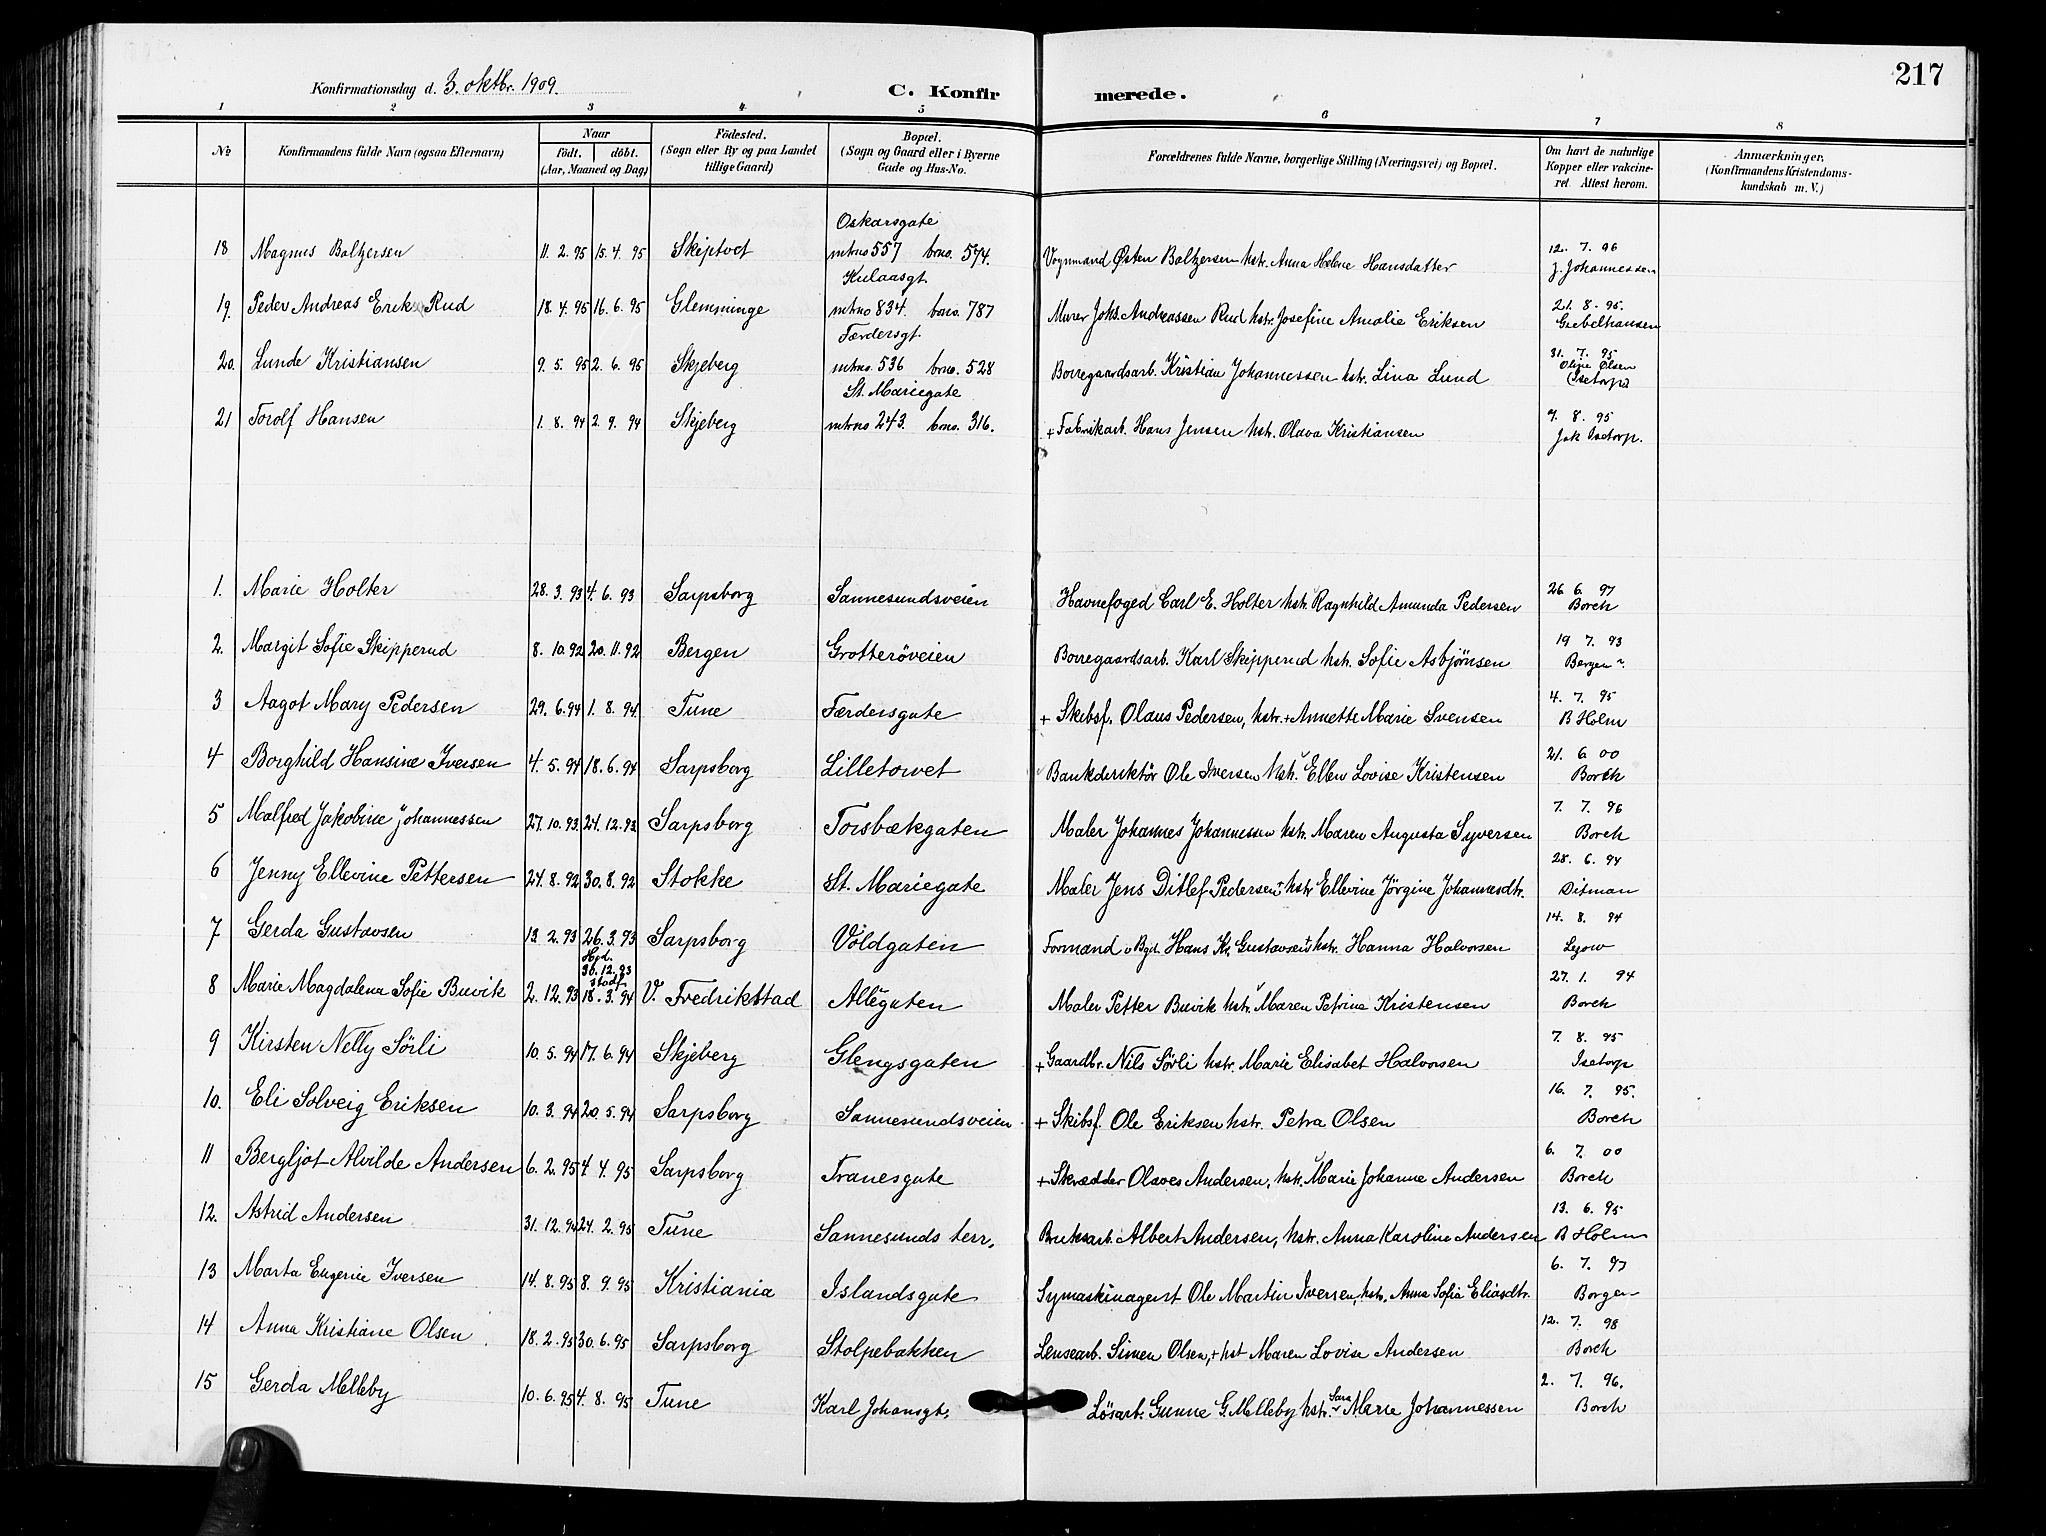 217
Konfirmationsdag d. 3. oktbr. 1909.
C. Konfirmerede.
1 2 3 4 5 6 7 8
No Konfirmandens fulde Navn (ogsaa Efternavn) Naar födt. döbt. (Aar, Maaned og Dag) Födested. (Sogn eller By og paa Landet tillige Gaard) Bopæl. (Sogn og Gaard eller i Byerne Gade og Hus-No. Forældrenes fulde Navne, borgerlige Stilling (Næringsvei) og Bopæl. Om havt de naturlige Kopper eller vakcineret. Attest herom. Anmærkninger. (Konfirmandens Kristendomskundskab m. V.)
18 Magnus Baltzersen 11. 2. 95 15. 4. 95 Skiptvet Oskarsgate mtrno 557 brno. 574. Vognmand Østen Baltzersen hstr. Anna Helene Hansdatter 12. 7. 96 J. Johannessen
19. Peder Andreas Erik Rud 18. 4. 95 16. 6. 95 Glemminge Kulaasgt. mtrno 834. brno. 787 Murer Johs. Andreassen Rud hstr. Josefine Amalie Eriksen 21. 8. 95. Giebelhausen
20. Lunde Kristiansen 9. 5. 95 2. 6. 95 Skjeberg Færdersgt. mtrno. 536 brno. 528 Borregaardsarb. Kristian Johannessen hstr. Lina Lund 31. 7. 95 Oline Olsen (Isetorp)
21 Torolf Hansen 1. 8. 94 2. 9. 94 Skjeberg St. Mariegate mtrno 243. brno. 316. + Fabrikarb. Hans Jensen hstr. Olava Kristiansen 9. 8. 95 Jak Isetorp.
1. Marie Holter 28. 3. 93 4. 6. 93 Sarpsborg Sannesundsveien Havnefoged Carl E. Holter hstr. Ragnhild Amunda Pedersen 26 6. 97 Borch
2. Margit Sofie Skipperud 8. 10. 92 20. 11. 92 Bergen Grotteröveien Borregaardsarb. Karl Skipperud hstr. Sofie Asbjörnsen 19 7. 93 Bergen
3 Aagot Mary Pedersen 29. 6. 94 1. 8. 94 Tune Færdersgate + Skibsf. Olaus Pedersen, hstr. + Annette Marie Svensen 4. 7. 95 B Holm
4 Borghild Hansine Iversen 4. 5. 94 18. 6. 94 Sarpsborg Lilletorvet Bankderiktör Ole Iversen hstr. Ellen Lovise Kristensen 21. 6. 00 Borch
5 Malfred Jakobine Johannessen 27. 10. 93 24. 12. 93 Sarpsborg Torsbækgaten Maler Johannes Johannessen hstr. Maren Augusta Syversen 7. 7. 96 Borch
6 Jenny Ellevine Pettersen 24. 8. 92 30. 8. 92 Stokke St. Mariegate Maler Jens Ditlef Pedersen hstr Ellevine Jörgine Johannesdtr. 28. 6. 94 Ditman
7 Gerda Gustavsen 13. 2. 93 26. 3. 93 Sarpsborg Voldgaten Formand v Bgd. Hans Kr. Gustavsen hstr. Hanna Halvorsen 14. 8. 94
8 Marie Magdalena Sofie Buvik 2. 12. 93 Hjd. 30. 12. 93 stadf. 18. 3. 94 V. Fredrikstad Allégaten Maler Petter Buvik hstr. Maren Petrine Kristensen 27. 1. 94 Borch
9 Kirsten Nelly Sörli 10. 5. 94 17. 6. 94 Skjeberg Glengsgaten + Gaardbr. Nils Sörli hstr. Marie Elisabet Halvorsen 7. 8. 95 Isetorp
10. Eli Solveig Eriksen 10. 3. 94 20. 5. 94 Sarpsborg Sannesundsveien + Skibsf. Ole Eriksen hstr. Petra Olsen 16. 7. 95. Borch
11 Bergljot Alvilde Andersen 6. 2. 95 4 4. 95 Sarpsborg Tranesgate + Skrædder Olaves Andersen, hstr. Marie Johanne Andersen 6. 7. 00 Borch
12. Astrid Andersen 31. 12. 94 24. 2. 95 Tune Sannesunds terr. Bruksarb. Albert Andersen, hstr. Anna Karoline Andersen 13. 6. 95 B Holm
13 Marta Eugenie Iversen 14. 8. 95 8. 9. 95 Kristiania Islandsgate Symaskinagent Ole Martin Iversen, hstr. Anna Sofie Eliasdtr. 6. 7. 97 Borgen
14 Anna Kristiane Olsen 18. 2. 95 30. 6. 95 Sarpsborg Stolpebakken Lensearb. Simen Olsen, + hst Maren Lovise Andersen 12. 7. 98 Borch
15 Gerda Melleby 10. 6. 95 4. 8. 95 Tune Karl Johansgt. Lösarb. Gunne G. Melleby hstr. Sara Marie Johannessen 2. 7. 96. Borch